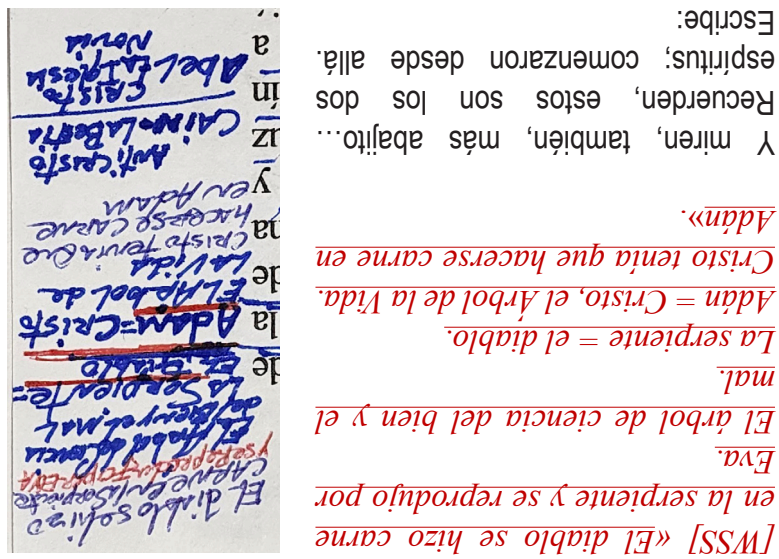 [WSS] «El diablo se hizo carne
en la serpiente y se reprodujo por
Eva.
El árbol de ciencia del bien y el
mal.
La serpiente = el diablo.
Adán = Cristo, el Árbol de la Vida.
Cristo tenía que hacerse carne en
Adán».
Y miren, también, más abajito…
Recuerden, estos son los dos
espíritus; comenzaron desde allá.
Escribe:
El diablo se hizo
carne en la serpiente
y se reprodujo por EVA
El Arbol de ciencia
del Bien y el mal
La Serpiente =
de El Diablo
la Adam = Cristo
de El Arbol de
La Vida
na Cristo Tenia Que
Hacerse Carne
y en Adam
Anticristo
uz Cain La Bestia
ín Cristo
Abel Iglesia
a Novia